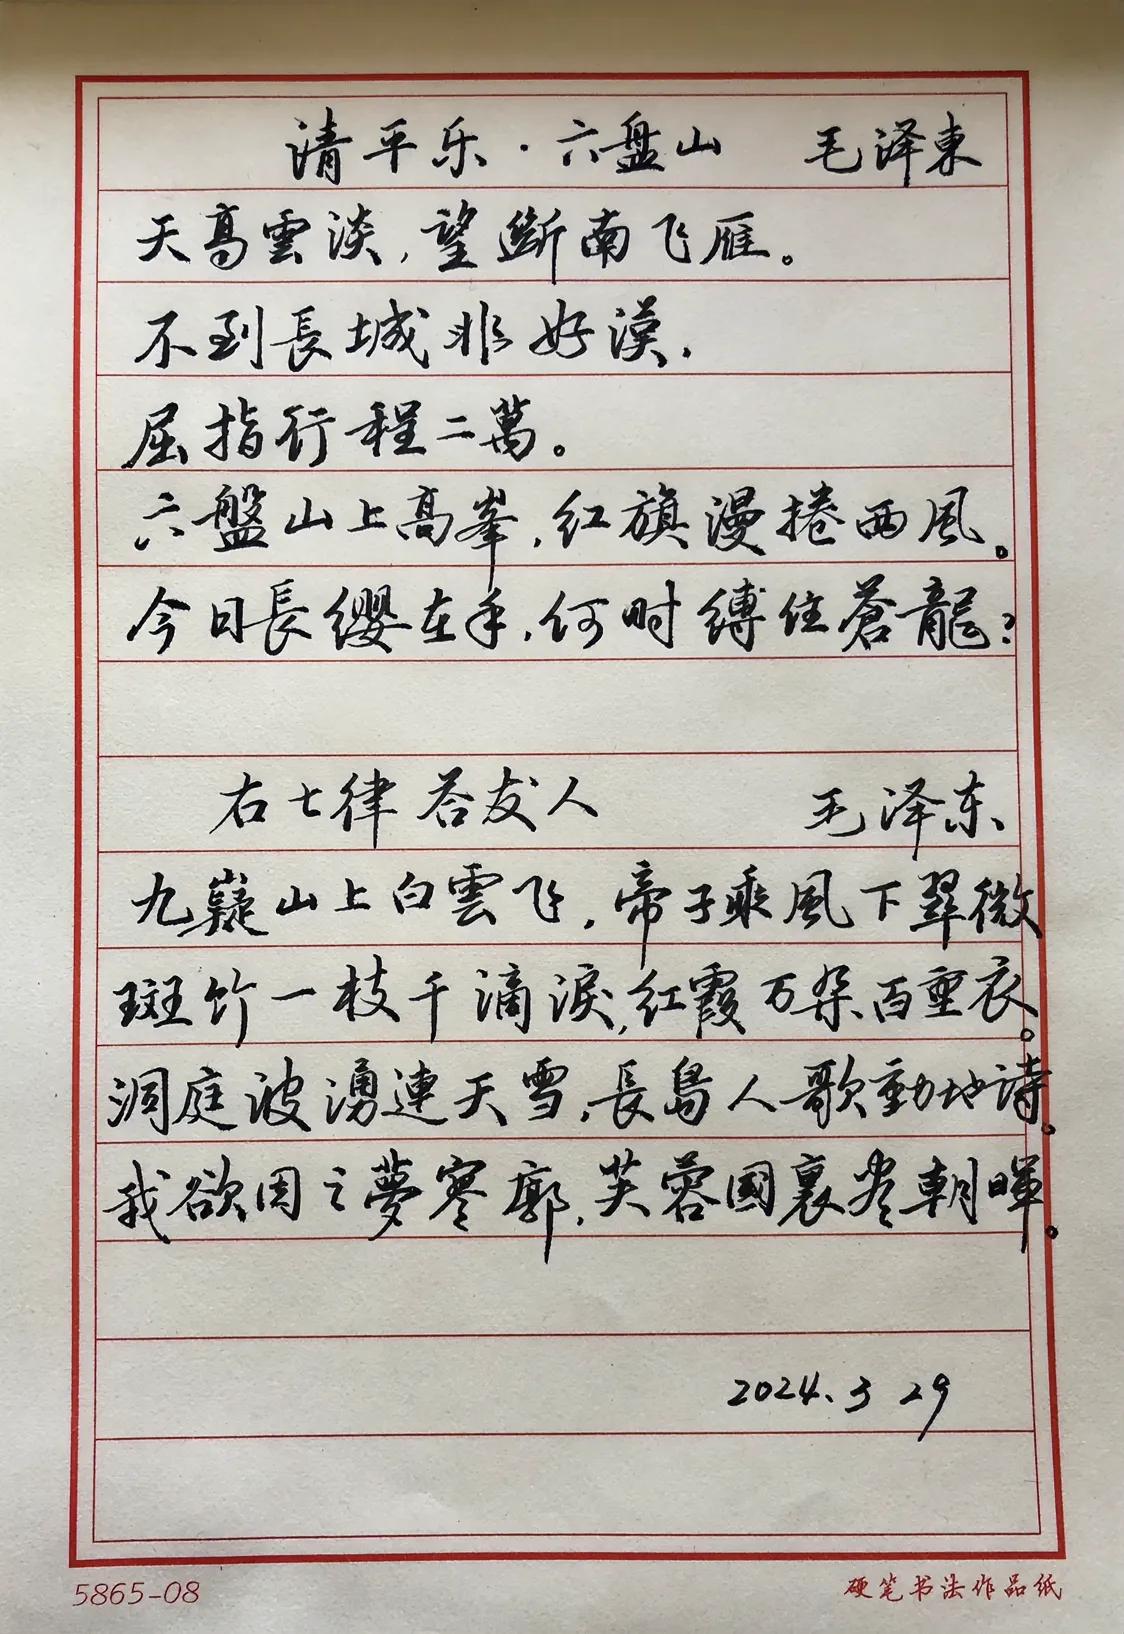 清平乐·六盘山 毛泽東
天高雲淡,望斷南飞雁。
不到長城非好漢,
屈指行程二萬。
六盤山上高峯,红旗漫捲西風。
今日長缨在手,何时缚住蒼龍?
右七律 答友人 毛泽东
九嶷山上白雲飞,帝子乘風下翠微
斑竹一枝千滴淚,红霞万朵百重衣。
洞庭波湧連天雪,長島人歌動地詩。
我欲因之夢寥廓,芙蓉國裏尽朝暉。
2024.3 29
5865-08 硬笔书法作品纸